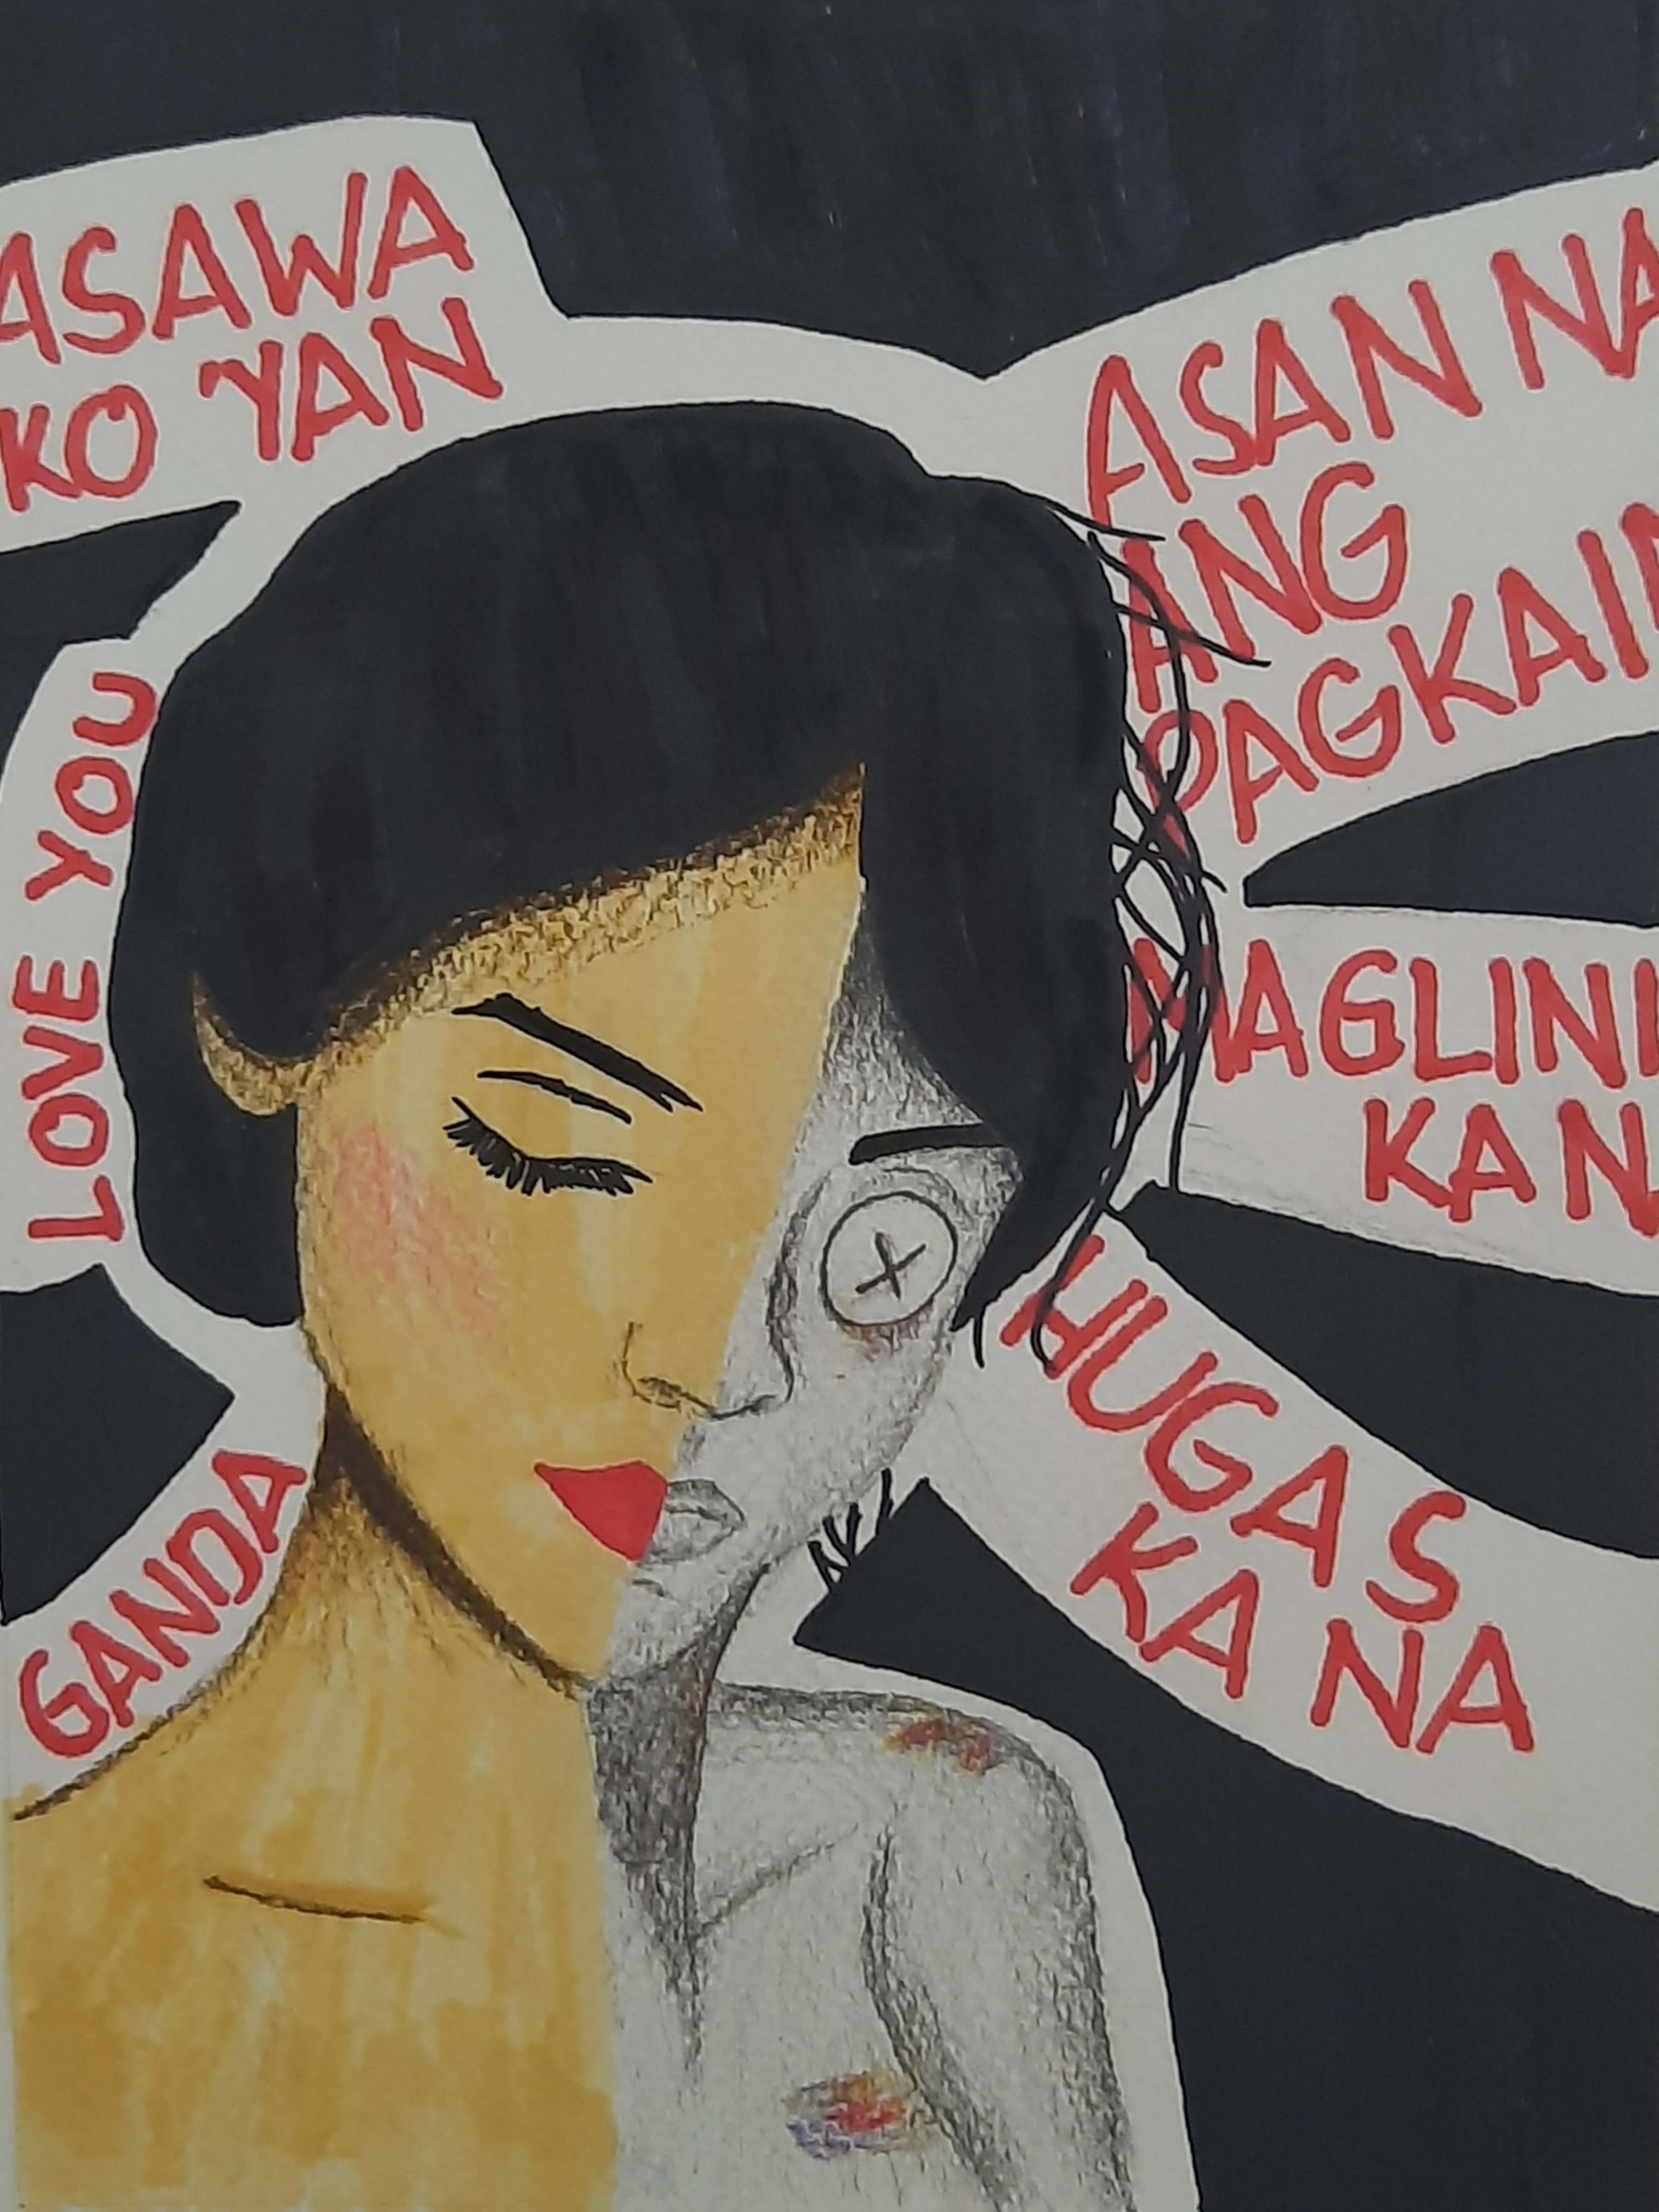 ASAWA
KO 'YAN
LOVE YOU
GANDA
ASAN NA
ANG
PAGKAIN
MAGLINI
KA NA
HUGAS
KA NA